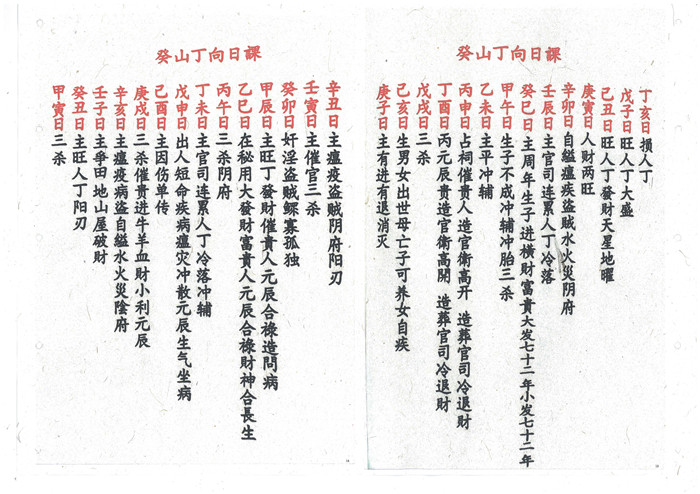 癸山丁向日課
丁亥日损人丁
戊子日旺人丁大盛
己丑日旺人丁發財天星地曜
庚寅日人财两旺
辛卯日自縊瘟疾盗贼水火災阴府
壬辰日主官司连累人丁冷落
癸巳日主周年生子进横財富貴大发七十二年小发七十二年
甲午日生子不成冲辅冲胎三杀
乙未日主平冲辅
丙申日占祠催贵人造官衛高开 造葬官司冷退财
丁酉日丙元辰贵造官衛高開 造葬官司冷退財
戊戌日三杀
己亥日生男女出世母亡子可养女自疾
庚子日主有进有退消灭
癸山丁向日課
辛丑日主瘟疫盗贼阴府阳刃
壬寅日主催官三杀
癸卯日奸淫盗贼鳏寡孤独
甲辰日主旺丁發財催貴人元辰合祿造問病
乙巳日在秘用大發財富貴人元辰合祿財神合長生
丙午日三杀阴府
丁未日主官司连累人丁冷落冲辅
戊申日出人短命疾病瘟灾冲散元辰生气坐病
己酉日主因伤单传
庚戌日三杀催贵进牛羊血財小利元辰
辛亥日主瘟疫病盗自縊水火災陰府
壬子日主爭田地山屋破財
癸丑日主旺人丁阳刃
甲寅日三杀